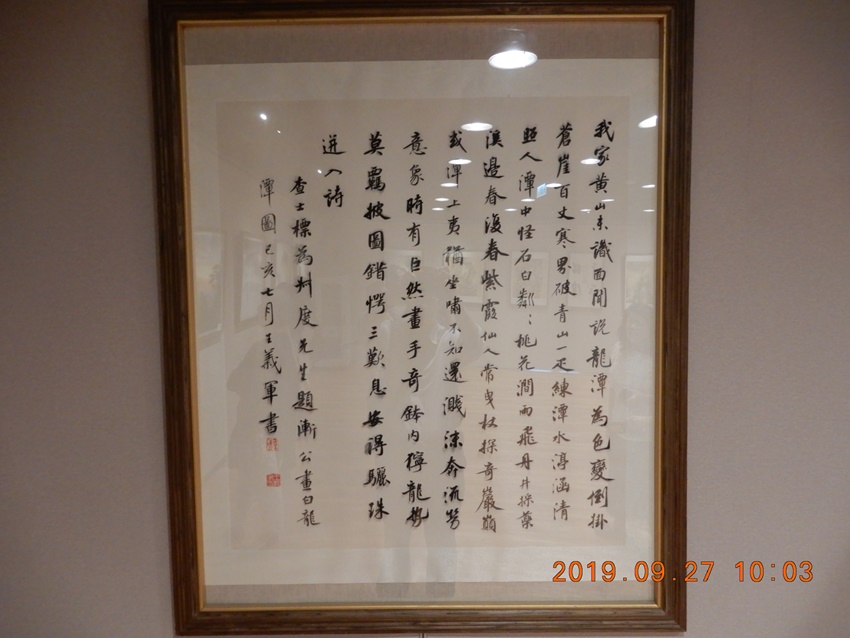 我家黃山未識面聞說龍潭為色變倒掛
蒼崖百丈寒界破青山一疋練潭水渟涵清
照人潭中怪石白粼：桃花澗雨飛丹井採藥
溪邊春復春紫霞仙人常曳杖探奇巖巔
或潭上夷猶坐嘯不知還濺沫奔流勞
意象時有巨然畫手奇鉢內獰龍勢
莫羈披圖錯愕三歎息安得驪珠
迸入詩
查士標為州度先生題漸公畫白龍
潭圖己亥七月王義軍書
2019.09.27 10:03